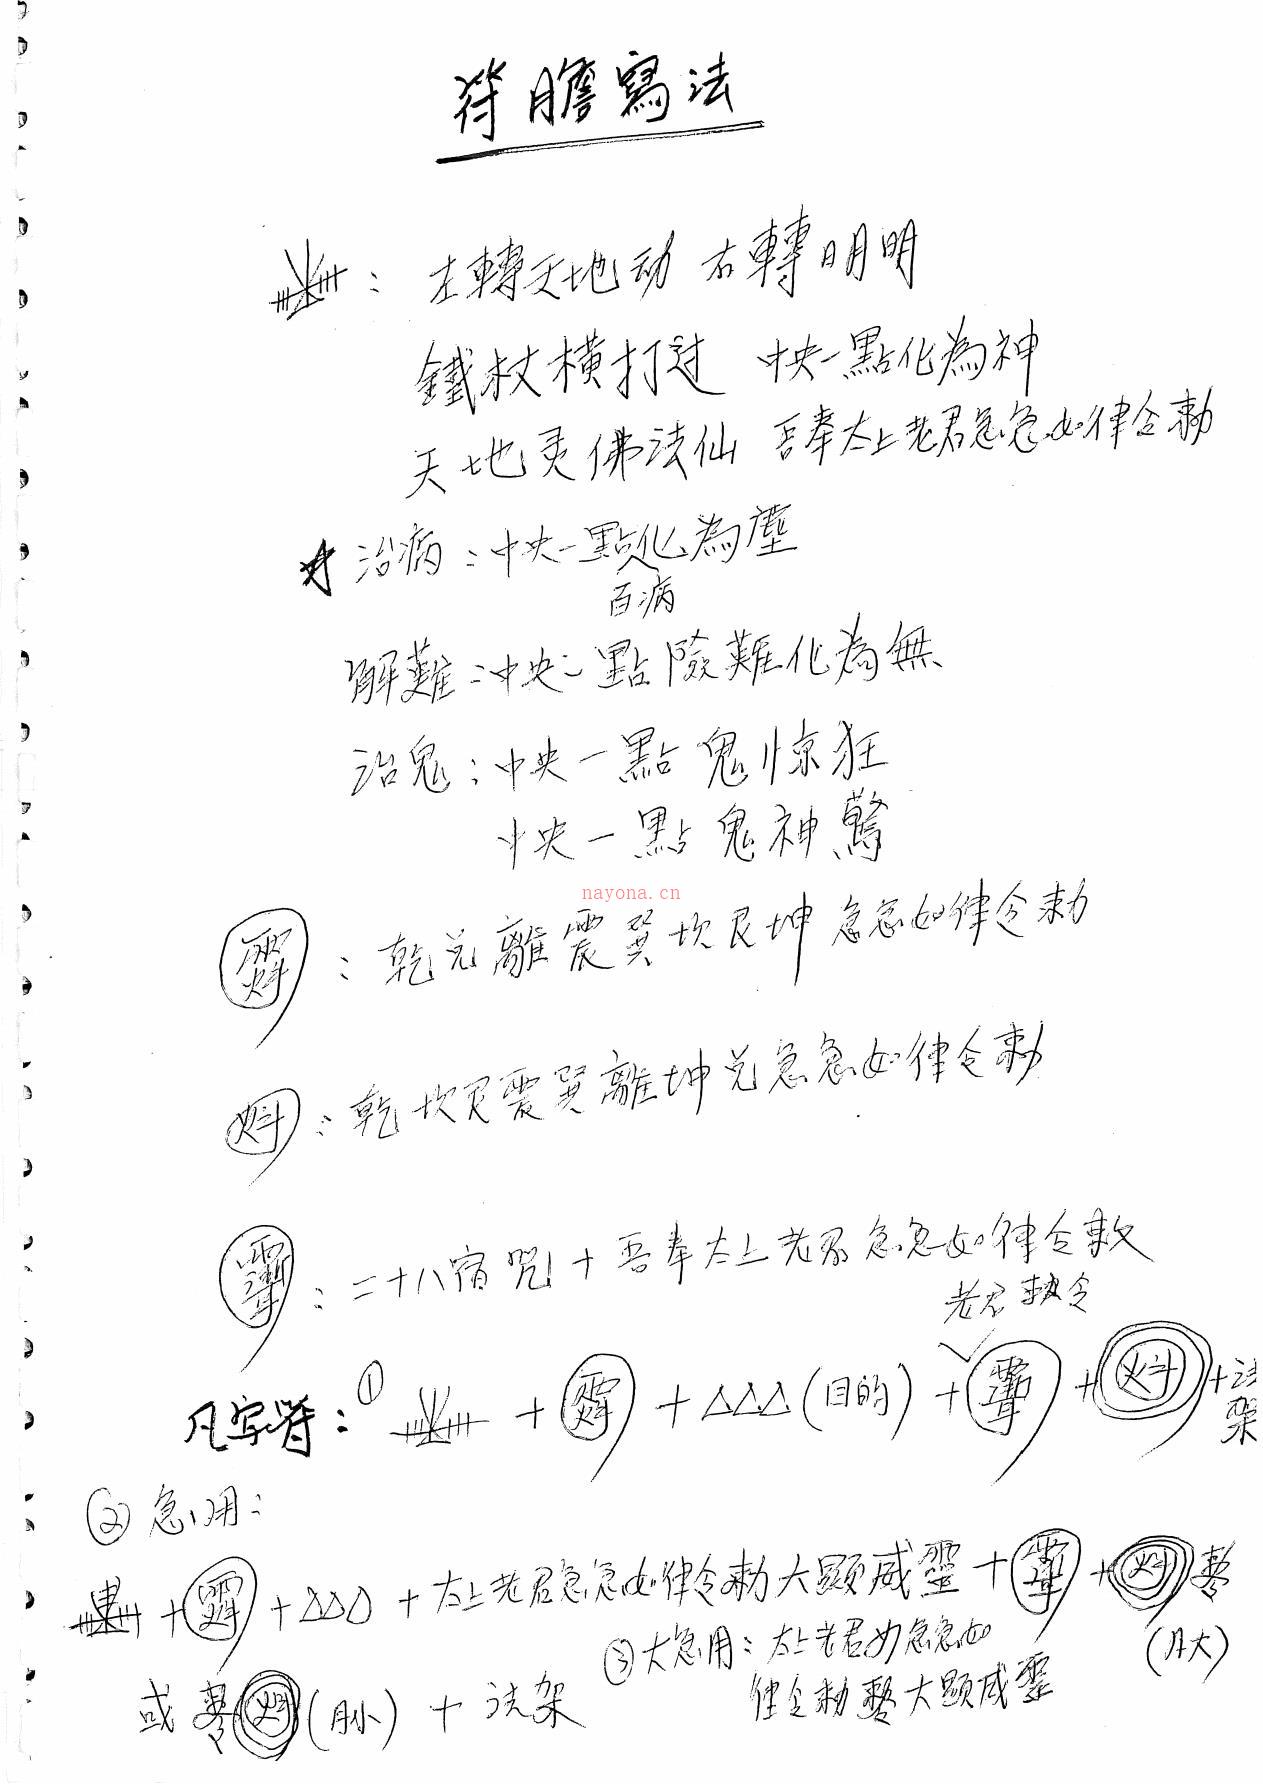 符膽寫法
：左轉天地动 右轉日月明
鐵杖横打过 中央一點化為神
天地灵佛法仙 吾奉太上老君急急如律令勅
★治病：中央一點化為塵
百病
解難：中央一點險難化為無
治鬼：中央一點鬼惊狂
中央一點鬼神驚
nayona.cn
：乾兑離震巽坎艮坤急急如律令勅
：乾坎艮震巽離坤兑急急如律令勅
：二十八宿咒+吾奉太上老君急急如律令敕
老君勅令
凡字符：① + + △△△(目的) + + +法架
②急用：
+ + △△△ + 太上老君急急如律令勅大顯威靈 + +
(月大)
③大急用：太上老君 急急如
律令勅 大顯威靈
或 (月小) + 法架